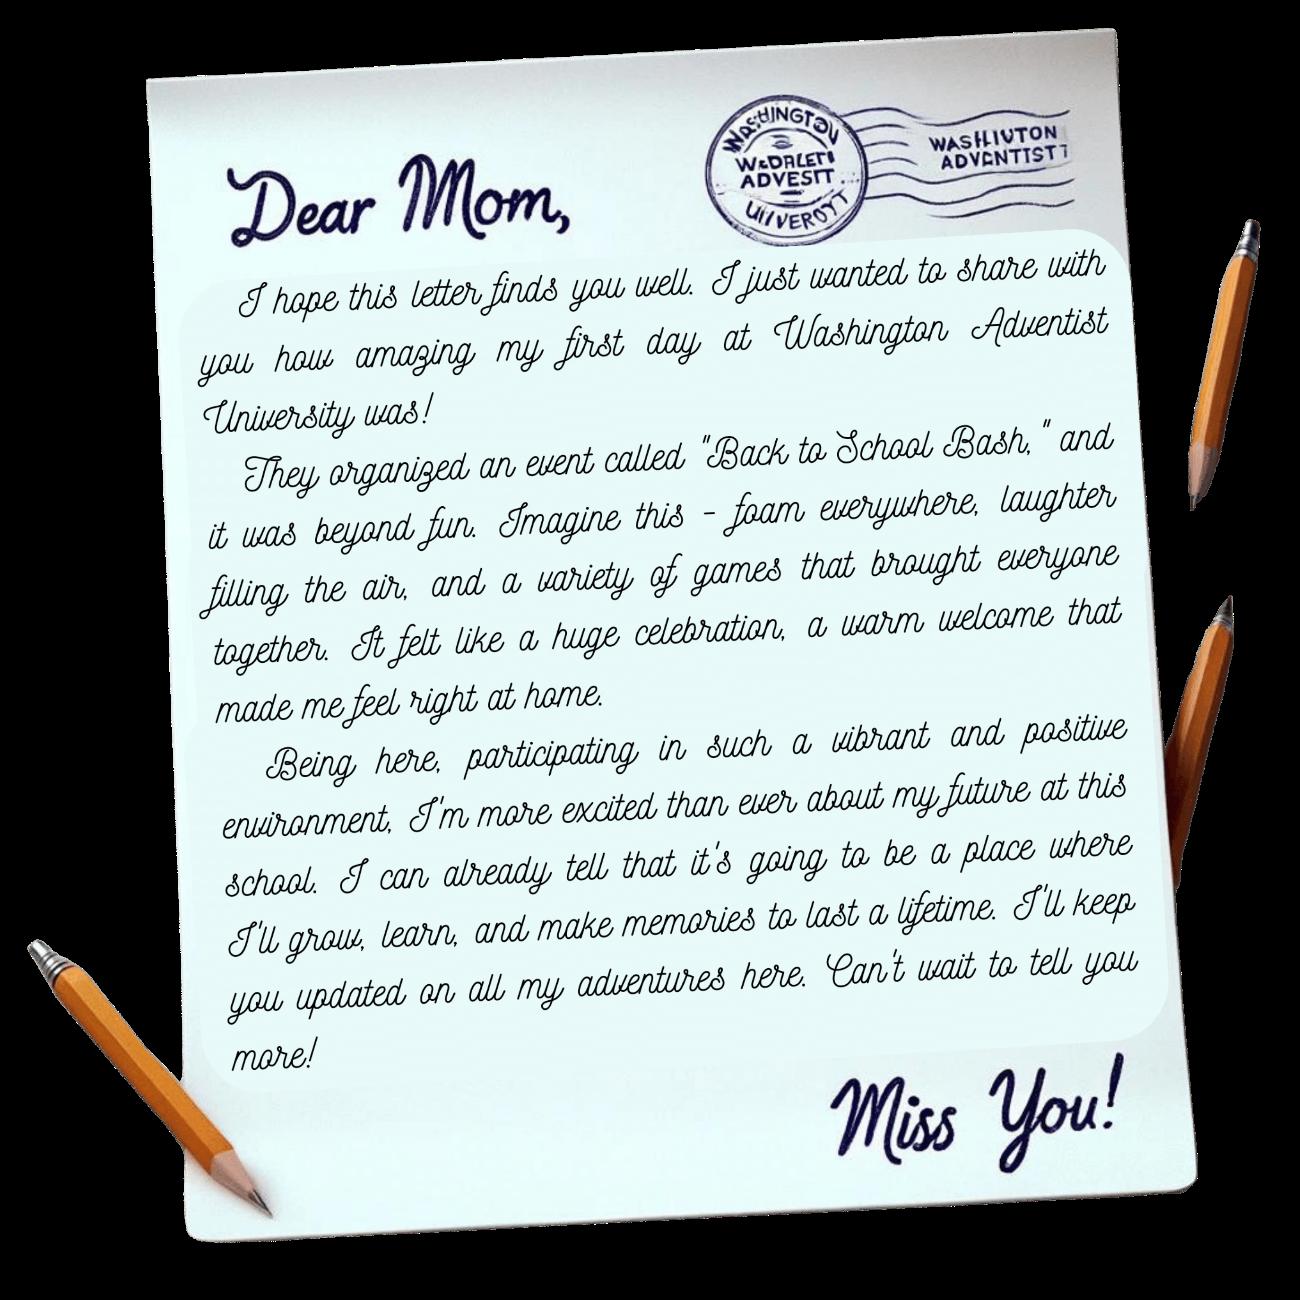 Dear Mom,
WASHINGTON
ADVESTT
I hope this letter finds you well. I just wanted to share with
you how amazing my first day at Washington Adventist
University was!
They organized an event called "Back to School Bash," and
it was beyond fun. Imagine this - foam everywhere, laughter
filling the air, and a variety of games that brought everyone
together. It felt like a huge celebration, a warm welcome that
made me feel right at home.
Being here, participating in such a vibrant and positive
environment, I'm more excited than ever about my future at this
school. I can already tell that it's going to be a place where
I'll grow, learn, and make memories to last a lifetime. I'll keep
you updated on all my adventures here. Can't wait to tell you
more!
Miss You!